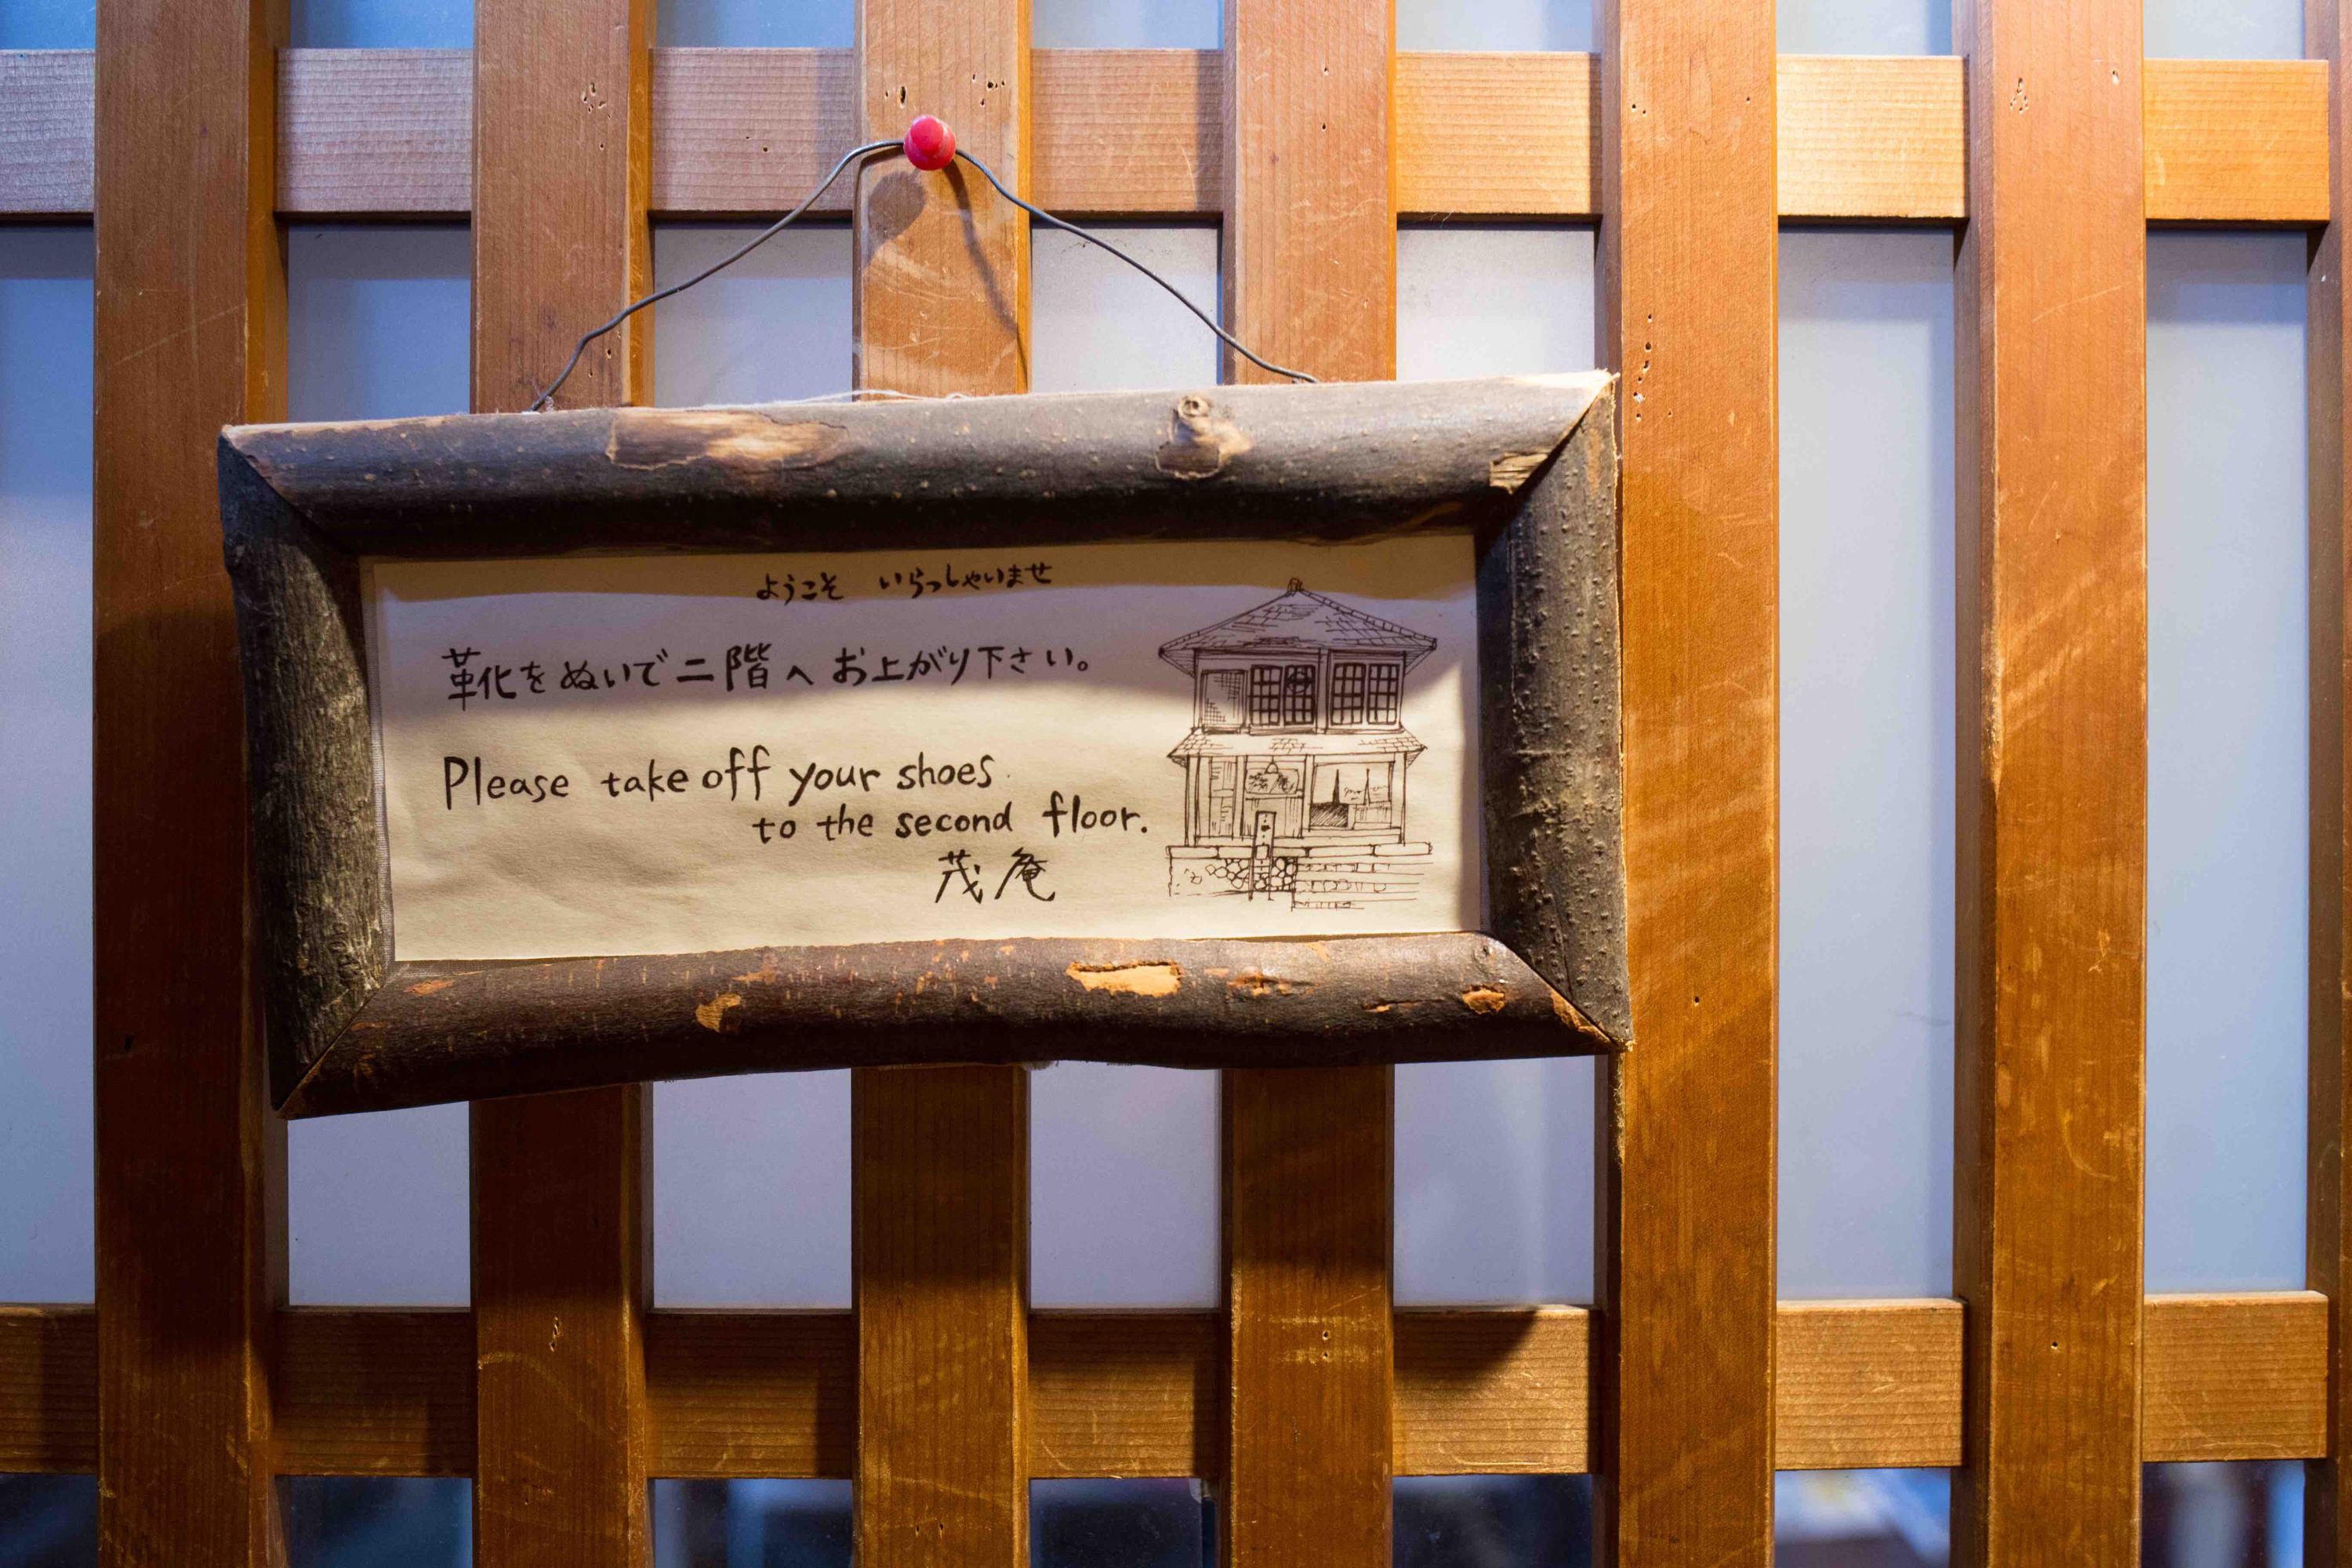 ようこそ いらっしゃいませ
靴をぬいで二階へお上がり下さい。
Please take off your shoes
to the second floor.
茂庵